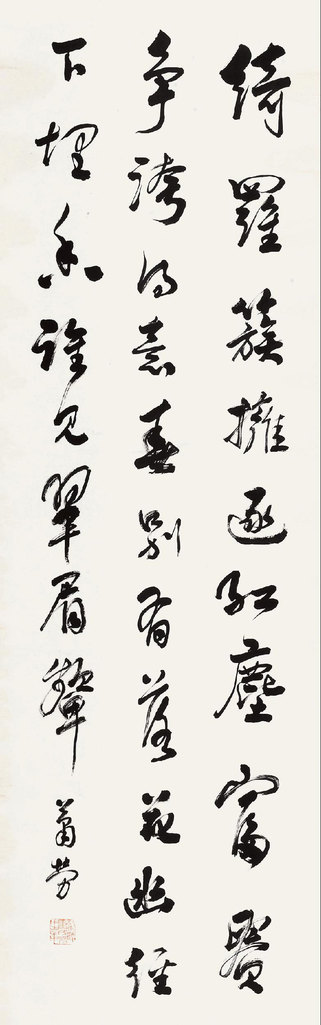 綺羅簇擁逐紅塵富賢
爭誇得意春別有落花幽徑
下埋香誰見翠眉顰
蕭勞